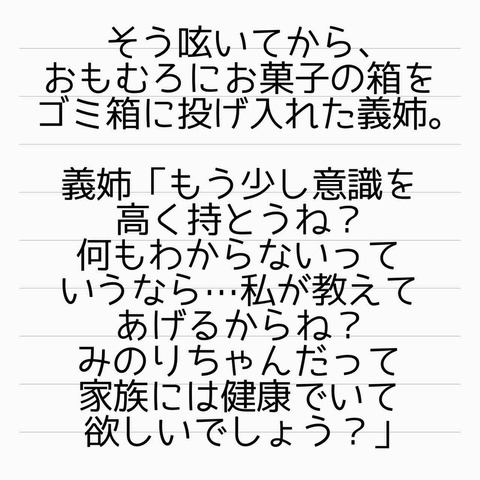 そう呟いてから、
おもむろにお菓子の箱を
ゴミ箱に投げ入れた義姉。
義姉「もう少し意識を
高く持とうね？
何もわからないって
いうなら…私が教えて
あげるからね？
みのりちゃんだって
家族には健康でいて
欲しいでしょう？」